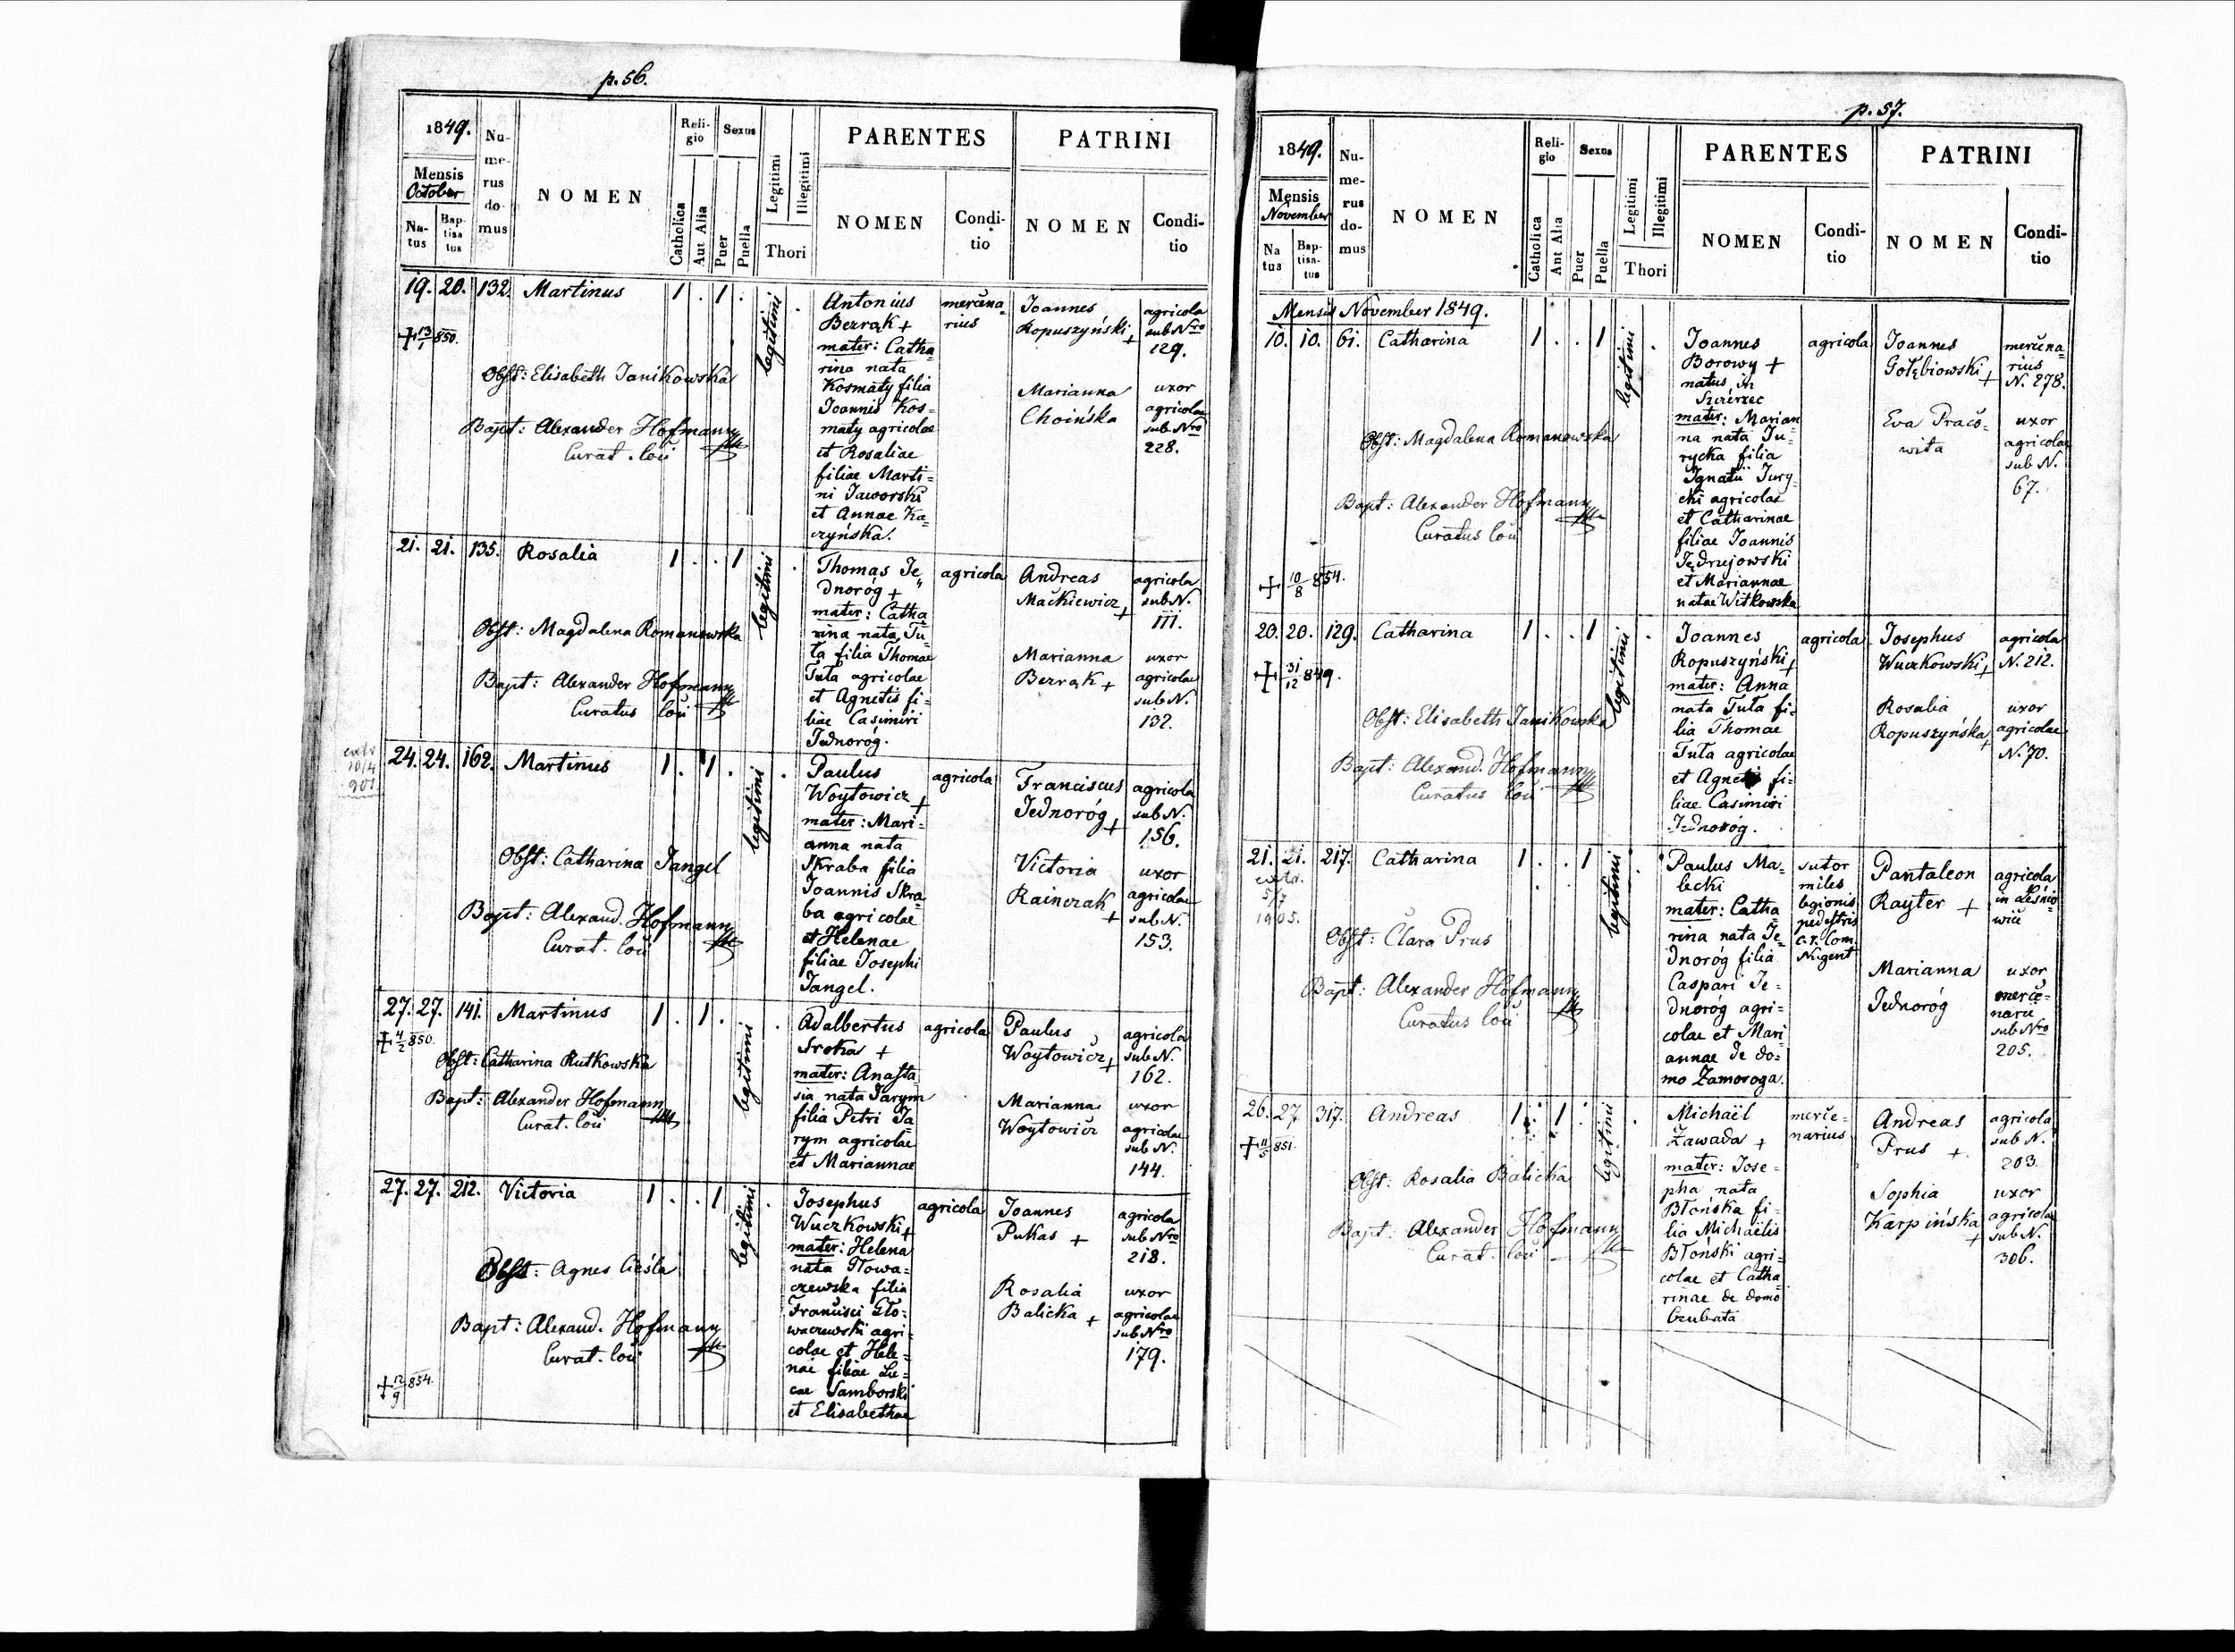 p. 56.
1849.
Mensis
October
Na-
tus
Bap-
tisa
tus
Nu-
me-
rus
do-
mus
NOMEN
Reli-
gio
Catholica
Aut Alia
Sexus
Puer
Puella
Legitimi
Illegitimi
Thori
PARENTES
NOMEN
Condi-
tio
PATRINI
NOMEN
Condi-
tio
19. 20. 132. Martinus 1 . 1 .
legitimi
+ 13/1 850.
Obst: Elisabeth Janikowska
Bapt: Alexander Hofmann
Curat. loci
Antonius
Bezrąk +
mater: Catha=
rina nata
Kosmaty filia
Joannis Kos=
maty agricolae
et Rosaliae
filiae Marti=
ni Jaworski
et Annae Ka=
czyńska.
mercena=
rius
Joannes
Ropuszyński +
agricola
sub Nro
129.
Marianna
Choińska
uxor
agricolae
sub Nro
228.
21. 21. 135. Rosalia 1 . . 1
legitimi
Obst: Magdalena Romanowska
Bapt: Alexander Hofmann
Curatus loci
Thomas Je=
dnoróg +
mater: Catha
rina nata Tu=
ta filia Thomae
Tuta agricolae
et Agnetis fi=
liae Casimiri
Jednoróg.
agricola
Andreas
Mackiewicz +
agricola
sub N.
111.
Marianna
Bezrąk +
uxor
agricolae
sub N.
132.
extr
10/4
907
24. 24. 162. Martinus 1 . 1 .
legitimi
Obst: Catharina Jangel
Bapt: Alexand. Hofmann
Curat. loci
Paulus
Woytowicz +
mater: Mari=
anna nata
Skraba filia
Joannis Skra=
ba agricolae
et Helenae
filiae Josephi
Jangel.
agricola
Franciscus
Jednoróg +
agricola
sub N.
156.
Victoria
Rainczak +
uxor
agricolae
sub N.
153.
27. 27. 141. Martinus 1 . 1 .
legitimi
+ 4/2 850.
Obst: Catharina Rutkowska
Bapt: Alexander Hofmann
Curat. loci
Adalbertus
Sroka +
mater: Anasta
sia nata Jarym
filia Petri Ja=
rym agricolae
et Mariannae
agricola
Paulus
Woytowicz +
agricola
sub N.
162.
Marianna
Woytowicz
uxor
agricolae
sub N.
144.
27. 27. 212. Victoria 1 . . 1
legitimi
Obst: Agnes Cieśla
Bapt: Alexand. Hofmann
Curat. loci
+ 12/9 854.
Josephus
Wuczkowski +
mater: Helena
nata Głowa=
czewska filia
Francisci Gło=
waczewski agri=
colae et Hele=
nae filiae Lu=
cae Samborski
et Elisabethae
agricola
Joannes
Pukas +
agricola
sub Nro
218.
Rosalia
Balicka +
uxor
agricolae
sub Nro
179.
p. 57.
1849.
Mensis
November
Na
tus
Bap-
tisa-
tus
Nu-
me-
rus
do-
mus
NOMEN
Reli-
gio
Catholica
Aut Alia
Sexus
Puer
Puella
Legitimi
Illegitimi
Thori
PARENTES
NOMEN
Condi-
tio
PATRINI
NOMEN
Condi-
tio
Mensis November 1849.
10. 10. 61. Catharina 1 . . 1
legitimi
Obst: Magdalena Romanowska
Bapt: Alexander Hofmann
Curatus loci
+ 10/8 854.
Joannes
Borowy +
natus in
Szczerzec
mater: Marian
na nata Ju=
rycka filia
Ignatii Jury=
cki agricolae
et Catharinae
filiae Joannis
Jędrzejowski
et Mariannae
natae Witkowska
agricola
Joannes
Gołębiowski +
mercena=
rius
N. 278.
Eva Praco=
wita
uxor
agricolae
sub N.
67.
20. 20. 129. Catharina 1 . . 1
legitimi
+ 31/12 849.
Obst: Elisabeth Janikowska
Bapt: Alexand. Hofmann
Curatus loci
Joannes
Ropuszyński +
mater: Anna
nata Tuta fi=
lia Thomae
Tuta agricolae
et Agnetis fi=
liae Casimiri
Jednoróg.
agricola
Josephus
Wuczkowski +
agricola
N. 212.
Rosalia
Ropuszyńska +
uxor
agricolae
N. 70.
21. 21. 217. Catharina 1 . . 1
legitimi
extr.
5/7
1905.
Obst: Clara Prus
Bapt: Alexander Hofmann
Curatus loci
Paulus Ma=
lecki
mater: Catha
rina nata Je=
dnoróg filia
Caspari Je=
dnoróg agri=
colae et Mari
annae de do=
mo Zamoroga.
sutor
miles
legionis
pedestris
c. r. Com.
Nugent
Pantaleon
Rayter +
agricola
in Leśnio=
wice
Marianna
Jednoróg
uxor
merce=
narii
sub Nro
205.
26. 27. 317. Andreas 1 . 1 .
legitimi
+ 11/5 851.
Obst: Rosalia Balicka
Bapt: Alexander Hofmann
Curat. loci
Michaël
Zawada +
mater: Jose=
pha nata
Błońska fi=
lia Michaëlis
Błonski agri=
colae et Catha=
rinae de domo
Czubata
merce=
narius
Andreas
Prus +
agricola
sub N.
203.
Sophia
Karpińska +
uxor
agricolae
sub N.
306.